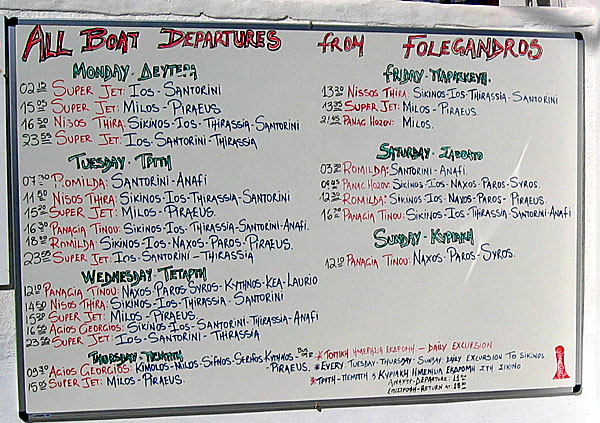 ALL BOAT DEPARTURES FROM FOLEGANDROS
MONDAY - ΔΕΥΤΕΡΑ
02:10 SUPER JET: IOS - SANTORINI
SUPER JET: MILOS - PIRAEUS
16:50 NISOS THIRA: SIKINOS - IOS - THIRASSIA - SANTORINI
23:55 SUPER JET: IOS - SANTORINI - THIRASSIA
TUESDAY - ΤΡΙΤΗ
07:30 ROMILDA: SANTORINI - ANAFI
11:50 NISOS THIRA: SIKINOS - IOS - THIRASSIA - SANTORINI
SUPER JET: MILOS - PIRAEUS.
PANAGIA TINOU: SIKINOS - IOS - THIRASSIA - SANTORINI - ANAFI.
ROMILDA: SIKINOS - IOS - NAXOS - PAROS - PIRAEUS.
23:55 SUPER JET: IOS - SANTORINI - THIRASSIA
WEDNESDAY - ΤΕΤΑΡΤΗ
12:10 PANAGIA TINOU: NAXOS - PAROS - SYROS - KYTHNOS - KEA - LAURIO
14:50 NISOS THIRA: SIKINOS - IOS - THIRASSIA - SANTORINI
SUPER JET: MILOS - PIRAEUS.
AGIOS GEORGIOS: SIKINOS - IOS - SANTORINI - THIRASSIA - ANAFI
23:55 SUPER JET: IOS - SANTORINI - THIRASSIA
THURSDAY - ΠΕΜΠΤΗ
AGIOS GEORGIOS: KIMOLOS - MILOS - SIFNOS - SERIFOS - KYTHNOS - PIRAEUS.
SUPER JET: MILOS - PIRAEUS.
FRIDAY - ΠΑΡΑΣΚΕΥΗ.
13:30 NISSOS THIRA: SIKINOS - IOS - THIRASSIA - SANTORINI
SUPER JET: MILOS - PIRAEUS
PANAG HOZOV: MILOS.
SATURDAY - ΣΑΒΒΑΤΟ
ROMILDA: SANTORINI - ANAFI.
PANAG HOZOV: SIKINOS - IOS - NAXOS - PAROS - SYROS.
ROMILDA: SIKINOS - IOS - NAXOS - PAROS - PIRAEUS.
PANAGIA TINOU: SIKINOS - IOS - THIRASSIA - SANTORINI - ANAFI
SUNDAY - ΚΥΡΙΑΚΗ
12:10 PANAGIA TINOU: NAXOS - PAROS - SYROS.
*ΤΟΠΙΚΗ ΗΜΕΡΗΣΙΑ ΕΚΔΡΟΜΗ - DAILY EXCURSION
*EVERY TUESDAY - THURSDAY - SUNDAY: DAILY EXCURSION TO SIKINOS
*ΤΡΙΤΗ - ΠΕΜΠΤΗ & ΚΥΡΙΑΚΗ ΗΜΕΡΗΣΙΑ ΕΚΔΡΟΜΗ ΣΤΗ ΣΙΚΙΝΟ
DEPARTURE:
ΕΠΙΣΤΡΟΦΗ - RETURN AT: